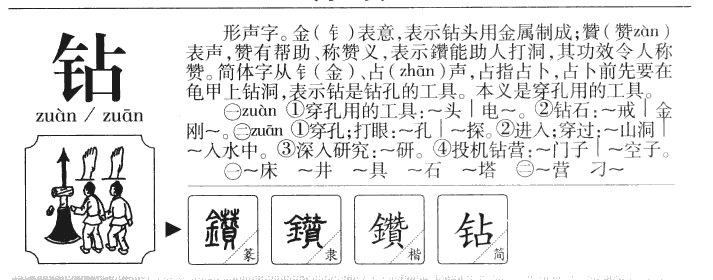 钻
zuàn / zuān
形声字。金(钅)表意,表示钻头用金属制成;贊(赞zàn)
表声,赞有帮助、称赞义,表示鑽能助人打洞,其功效令人称
赞。简体字从钅(金)、占(zhān)声,占指占卜,占卜前先要在
龟甲上钻洞,表示钻是钻孔的工具。本义是穿孔用的工具。
㊀zuàn ①穿孔用的工具:~头|电~。②钻石:~戒|金
刚~。㊁zuān ①穿孔;打眼:~孔|~探。②进入;穿过:~山洞|
~入水中。③深入研究:~研。④投机钻营:~门子|~空子。
㊀~床 ~井 ~具 ~石 ~塔 ㊁~营 刁~
鑽 篆 鑽 隶 鑽 楷 钻 简